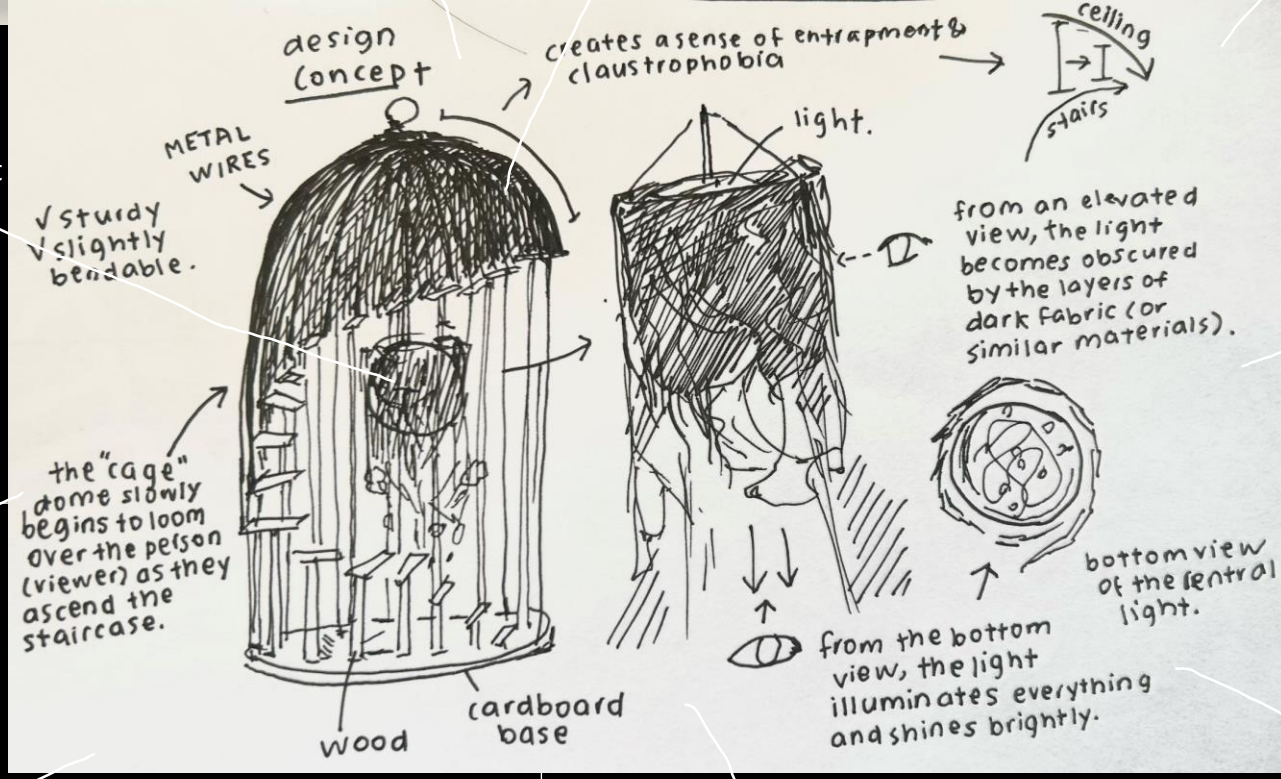 design
concept
creates a sense of entrapment &
claustrophobia
ceiling
stairs
METAL
WIRES
√ sturdy
√ slightly
bendable.
light.
from an elevated
view, the light
becomes obscured
by the layers of
dark fabric (or
similar materials).
the "cage"
dome slowly
begins to loom
over the person
(viewer) as they
ascend the
staircase.
bottom view
of the central
light.
from the bottom
view, the light
illuminates everything
and shines brightly.
cardboard
base
wood